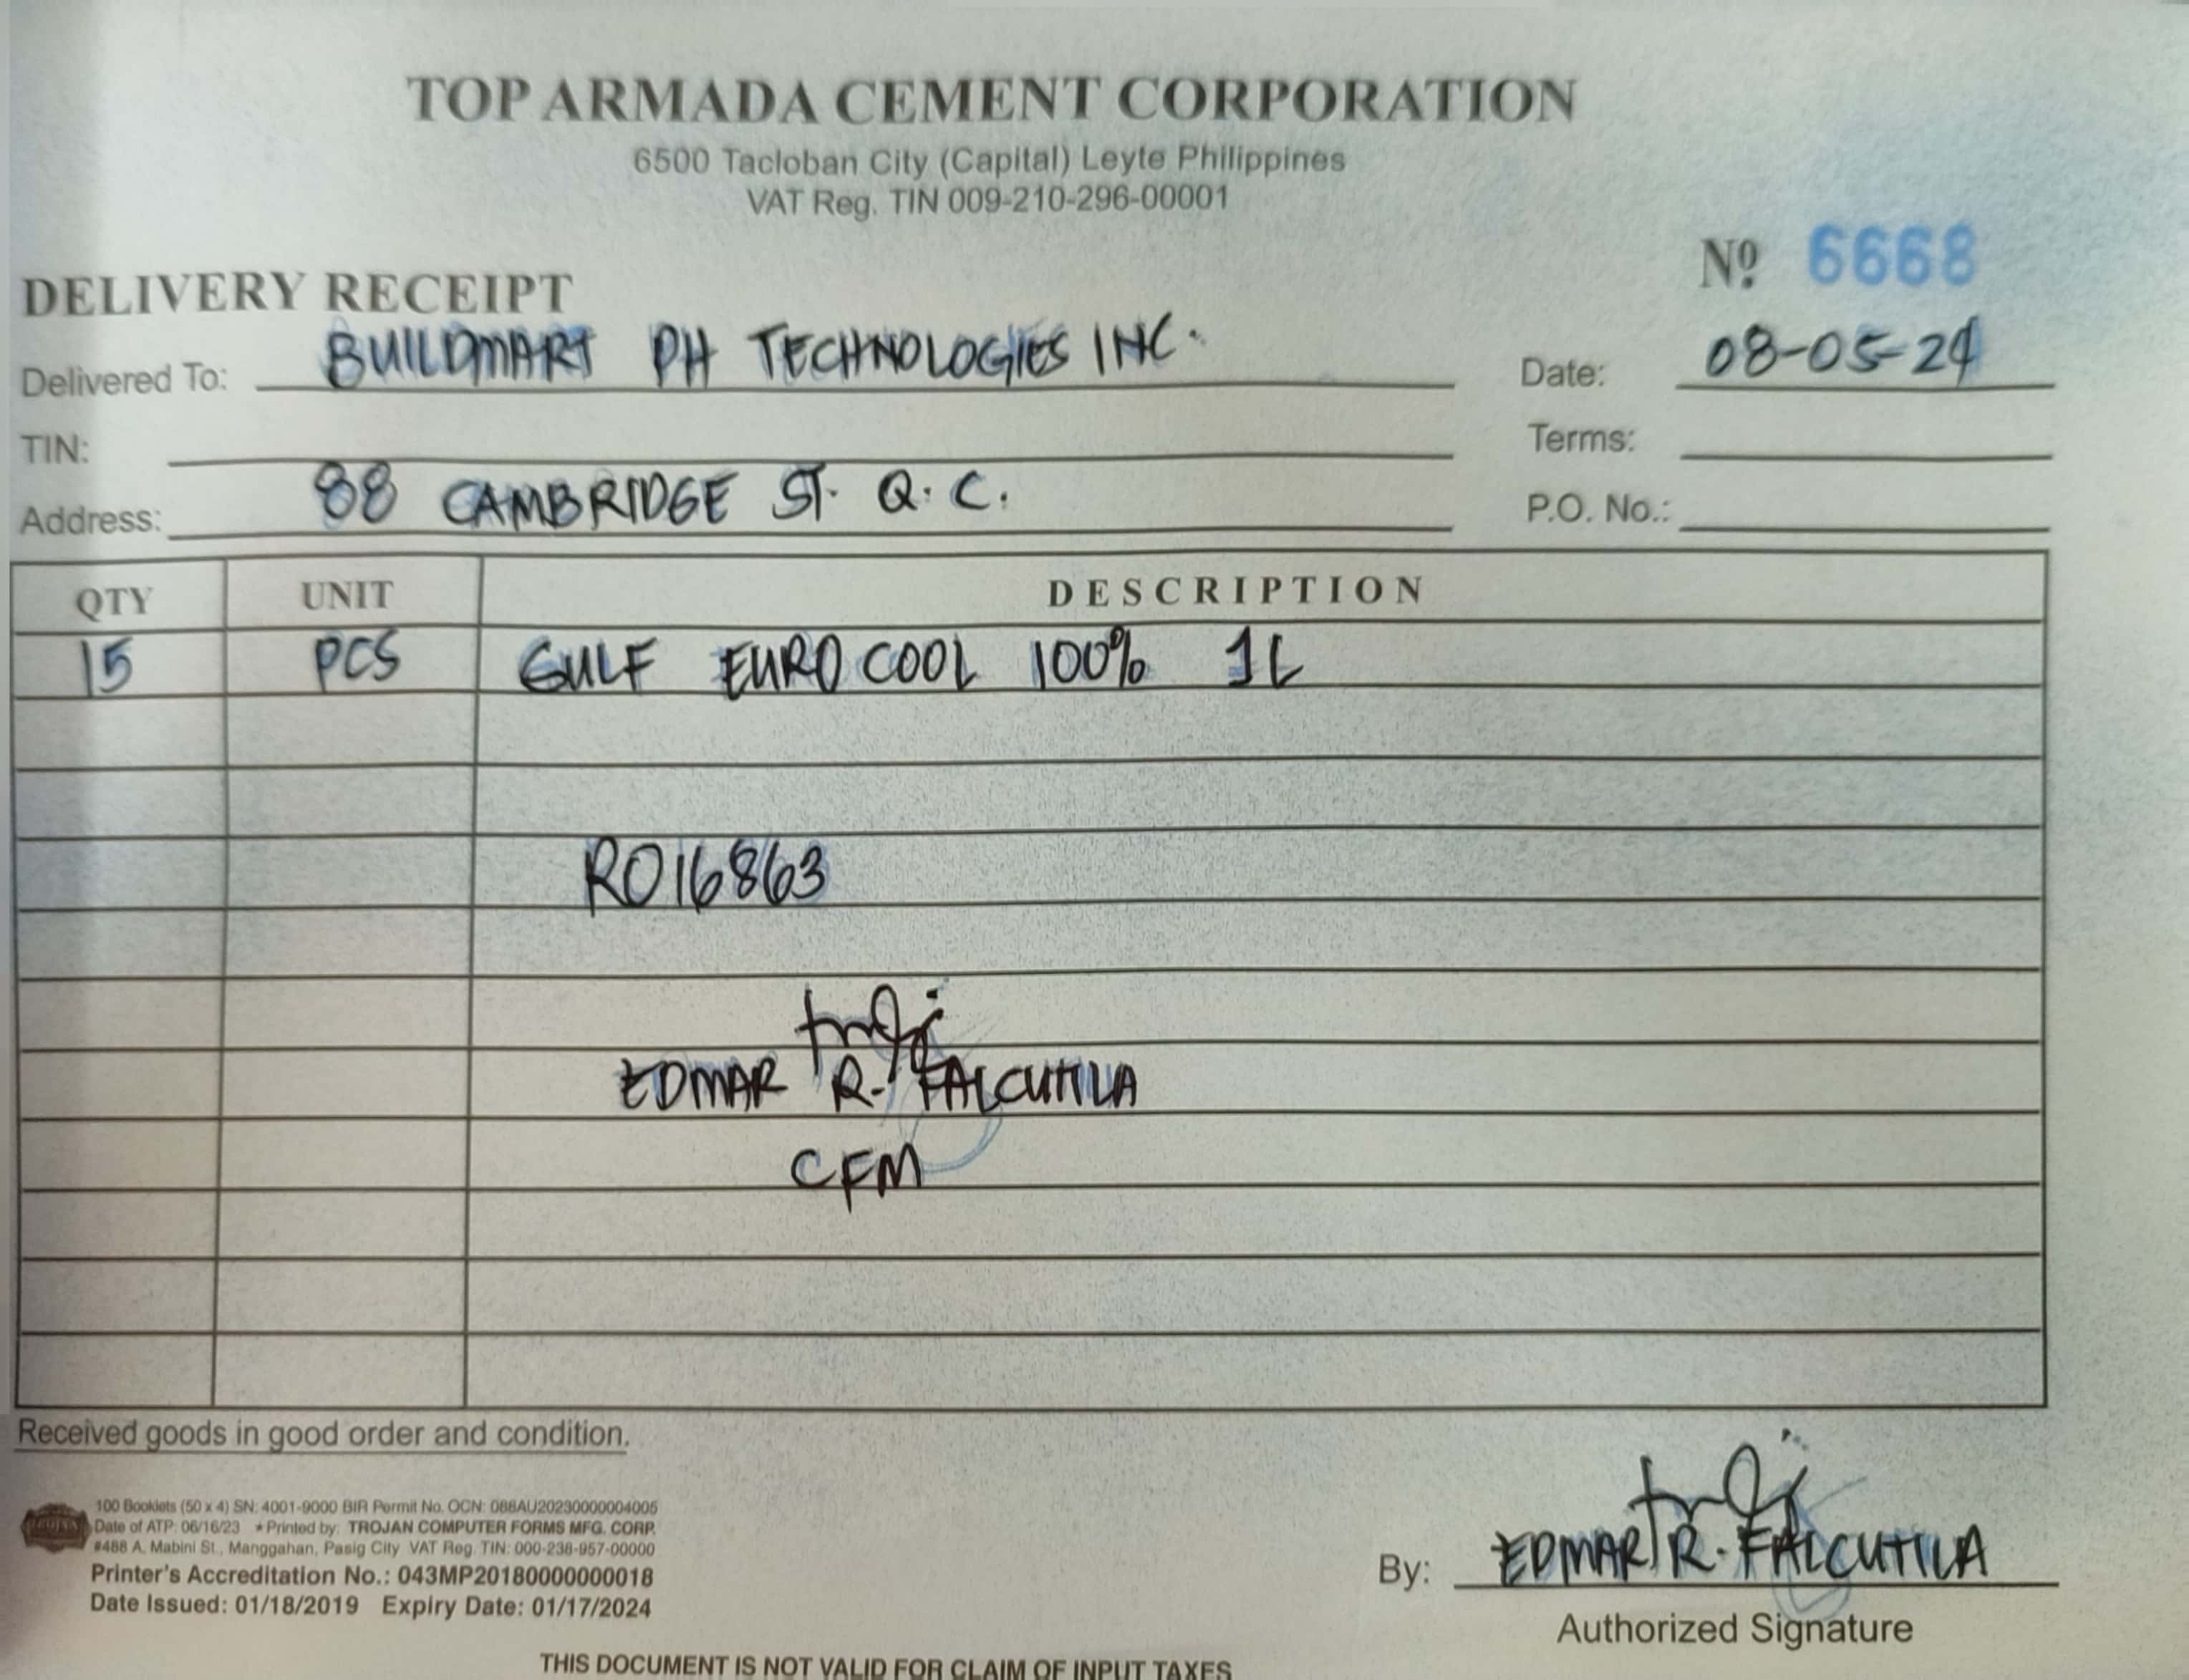 TOP ARMADA CEMENT CORPORATION
6500 Tacloban City (Capital) Leyte Philippines
VAT Reg. TIN 009-210-296-00001
Nº 6668
DELIVERY RECEIPT
Delivered To: BUILDMART PH TECHNOLOGIES INC.
Date: 08-05-24
TIN:
Terms:
Address: 88 CAMBRIDGE ST. Q.C.
P.O. No.:
QTY UNIT DESCRIPTION
15 PCS GULF EURO COOL 100% 1L
RO16863
EDMAR R. FALCUTILA
CFM
Received goods in good order and condition.
100 Booklets (50 x 4) SN: 4001-9000 BIR Permit No. OCN: 088AU20230000004005
Date of ATP: 06/16/23 ★Printed by: TROJAN COMPUTER FORMS MFG. CORP.
#488 A. Mabini St., Manggahan, Pasig City VAT Reg. TIN: 000-238-957-00000
Printer's Accreditation No.: 043MP20180000000018
Date Issued: 01/18/2019 Expiry Date: 01/17/2024
By: EDMAR R. FALCUTILA
Authorized Signature
THIS DOCUMENT IS NOT VALID FOR CLAIM OF INPUT TAXES